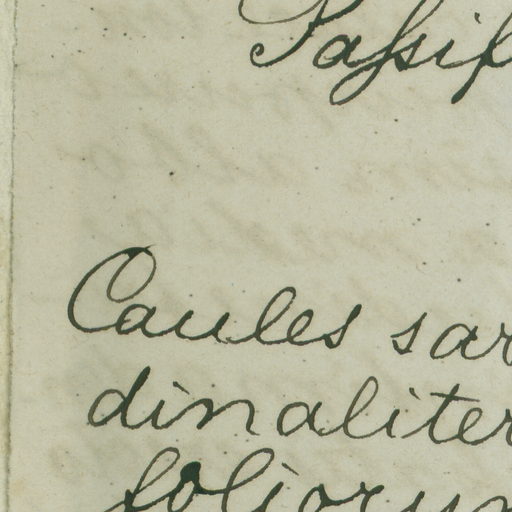 Passif
Caules sar
dinaliter
foliorum